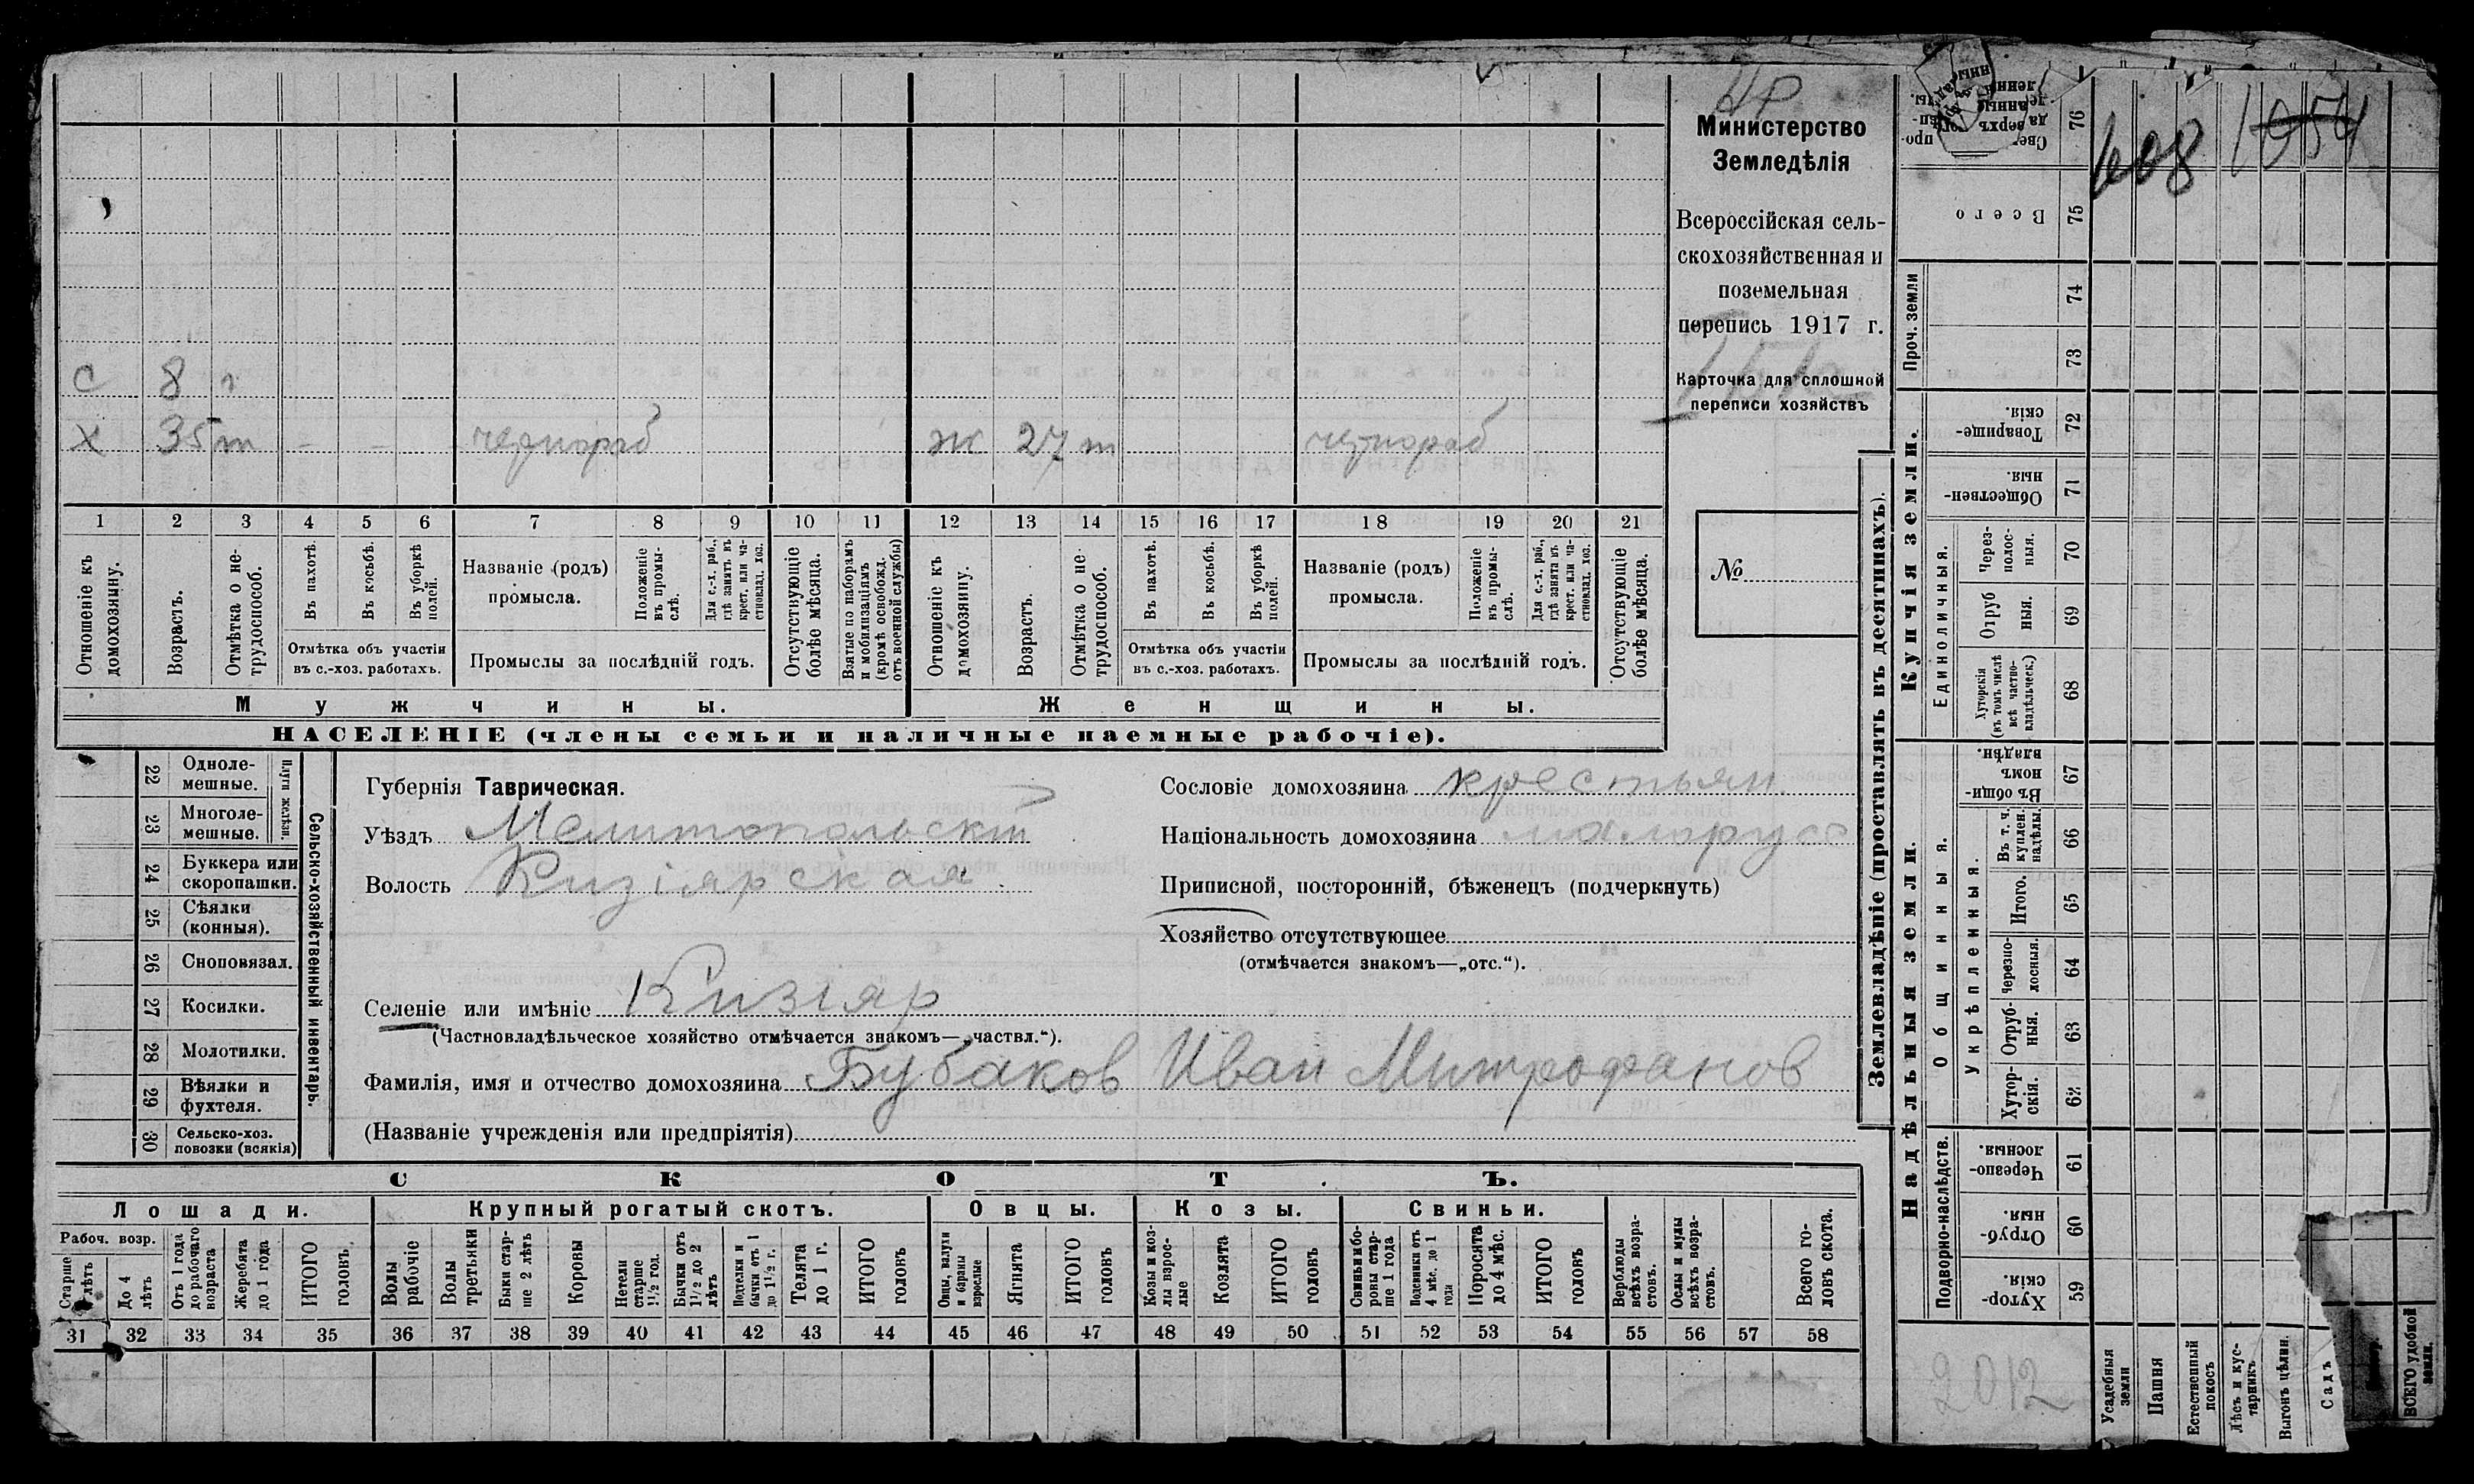 с 8 г
х 35 т чернораб ж 27 т чернораб
1 2 3 4 5 6 7 8 9 10 11 12 13 14 15 16 17 18 19 20 21
Отношеніе къ домохозяину.
Возрастъ.
Отмѣтка о не-трудоспособ.
Въ пахотѣ.
Въ косьбѣ.
Въ уборкѣ полей.
Отмѣтка объ участіи
въ с.-хоз. работахъ.
Названіе (родъ)
промысла.
Положеніе въ промы-слѣ.
Для с.-х. раб., гдѣ занятъ въ крест. или ча-стновлад. хоз.
Промыслы за послѣдній годъ.
Отсутствующіе болѣе мѣсяца.
Взятые по наборамъ и мобилизаціямъ (кромѣ освобожд. отъ военной службы)
Отношеніе къ домохозяину.
Возрастъ.
Отмѣтка о не-трудоспособ.
Въ пахотѣ.
Въ косьбѣ.
Въ уборкѣ полей.
Отмѣтка объ участіи
въ с.-хоз. работахъ.
Названіе (родъ)
промысла.
Положеніе въ промы-слѣ.
Для с.-х. раб., гдѣ занята въ крест. или ча-стновлад. хоз.
Промыслы за послѣдній годъ.
Отсутствующіе болѣе мѣсяца.
Мужчины. Женщины.
НАСЕЛЕНІЕ (члены семьи и наличные наемные рабочіе).
Министерство
Земледѣлія
Всероссійская сель-
скохозяйственная и
поземельная
перепись 1917 г.
Карточка для сплошной
переписи хозяйствъ
№
22 Одноле-мешные.
23 Многоле-мешные.
Плуги желѣзн.
24 Буккера или скоропашки.
25 Сѣялки (конныя).
26 Сноповязал.
27 Косилки.
28 Молотилки.
29 Вѣялки и фухтеля.
30 Сельско-хоз. повозки (всякія)
Сельско-хозяйственный инвентарь.
Губернія Таврическая.
Уѣздъ Мелитопольскій
Волость Кизіярская
Селеніе или имѣніе Кизіяр
(Частновладѣльческое хозяйство отмѣчается знакомъ—„частвл.“).
Фамилія, имя и отчество домохозяина Бубаков Иван Митрофанов
(Названіе учрежденія или предпріятія)
Сословіе домохозяина крестьян.
Національность домохозяина малорус
Приписной, посторонній, бѣженецъ (подчеркнуть)
Хозяйство отсутствующее
(отмѣчается знакомъ—„отс.“).
СКОТЪ.
Лошади. Крупный рогатый скотъ. Овцы. Козы. Свиньи.
Рабоч. возр.
Старше лѣтъ
До 4 лѣтъ
Отъ 1 года до рабочаго возраста
Жеребята до 1 года
ИТОГО головъ
Волы рабочіе
Волы третьяки
Быки стар-ше 2 лѣтъ
Коровы
Нетели старше 1½ год.
Бычки отъ 1½ до 2 лѣтъ
Подтелки и бычки отъ 1 до 1½ г.
Телята до 1 г.
ИТОГО головъ
Овцы, валухи и бараны взрослые
Ягнята
ИТОГО головъ
Козы и коз-лы взрос-лые
Козлята
ИТОГО головъ
Свиньи и бо-ровы стар-ше 1 года
Подсвинки отъ 4 мѣс. до 1 года
Поросята до 4 мѣс.
ИТОГО головъ
Верблюды всѣхъ возра-стовъ.
Ослы и мулы всѣхъ возра-стовъ.
Всего го-ловъ скота.
31 32 33 34 35 36 37 38 39 40 41 42 43 44 45 46 47 48 49 50 51 52 53 54 55 56 57 58
Землевладѣніе (проставлять въ десятинахъ).
608 1054
76
Всего 75
Проч. земли 74
73
Купчія земли.
Товарище-скія. 72
Обществен-ныя. 71
Единоличныя.
Через-полос-ныя. 70
Отруб ныя. 69
Хуторскія (въ томъ числѣ всѣ частно-владѣльческ.) 68
Надѣльныя земли.
Общинныя.
Въ общи-номъ владѣн. 67
Укрѣпленныя.
Въ т. ч. куплен. надѣлы. 66
Итого. 65
Черезпо-лосныя. 64
Отруб-ныя. 63
Хутор-скія. 62
Подворно-наслѣдств.
Черезпо-лосныя. 61
Отруб-ныя. 60
Хутор-скія. 59
2012
Усадебныя земли
Пашня
Естественный покосъ
Лѣсъ и кус-тарникъ
Выгонъ цѣлин.
Садъ
ВСЕГО удобной земли.